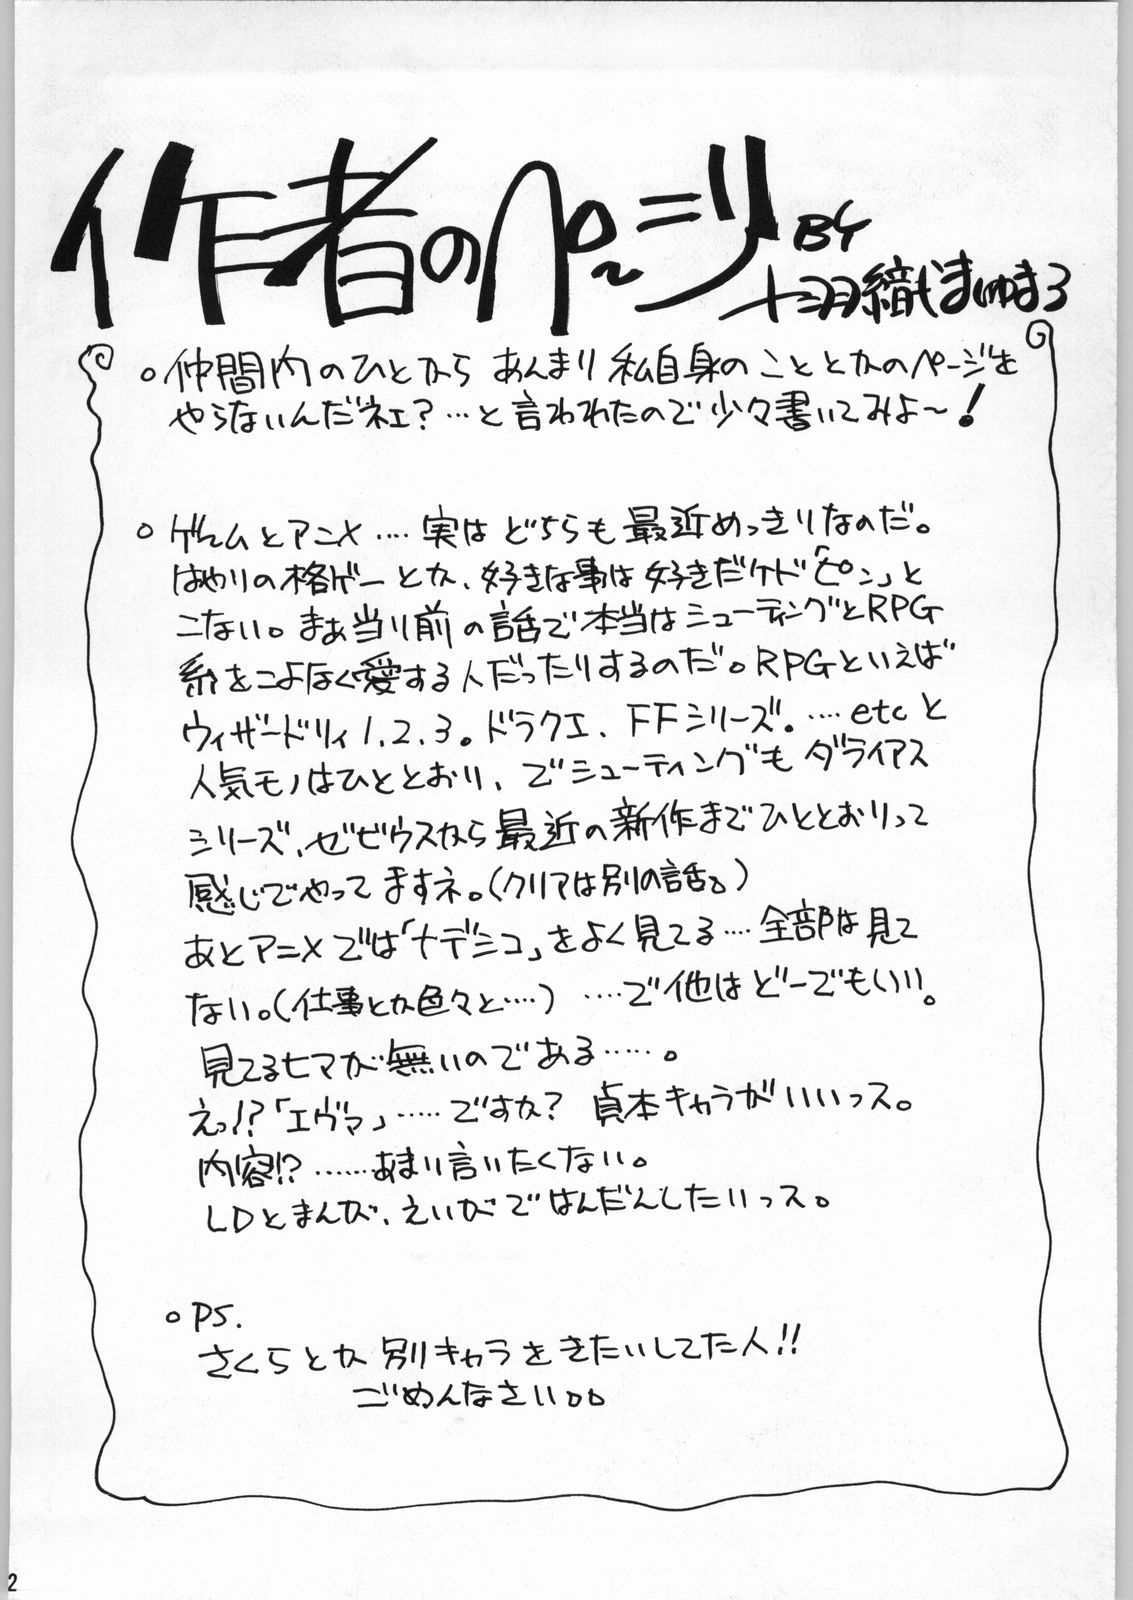 作者のページ BY
十羽織ましゅまろ
。仲間内のひとから あんまり 私自身のこととかのページを
やらないんだネェ?…と言われたので少々書いてみよ〜!
。ゲームとアニメ‥‥実はどちらも最近めっきりなのだ。
はやりの格ゲーとか、好きな事は好きだケド「ピン」と
こない。まぁ当り前の話で本当はシューティングとRPG
系をこよなく愛する人だったりするのだ。RPGといえば
ウィザードリィ1.2.3。ドラクエ、FFシリーズ。‥‥etcと
人気モノはひととおり、でシューティングもダライアス
シリーズ、ゼビウスなら最近の新作までひととおりって
感じでやってますネ。(クリアは別の話。)
あとアニメでは「ナデシコ」をよく見てる‥‥全部は見て
ない。(仕事とか色々と‥‥) ‥‥で他はどーでもいい。
見てるヒマが無いのである‥‥‥。
えっ!?「エヴァ」‥‥‥ですか? 貞本キャラがいいっス。
内容!? ‥‥‥あまり言いたくない。
LDとまんが、えいがではんだんしたいっス。
。PS.
さくらとか別キャラをきたいしてた人!!
ごめんなさい。。
2